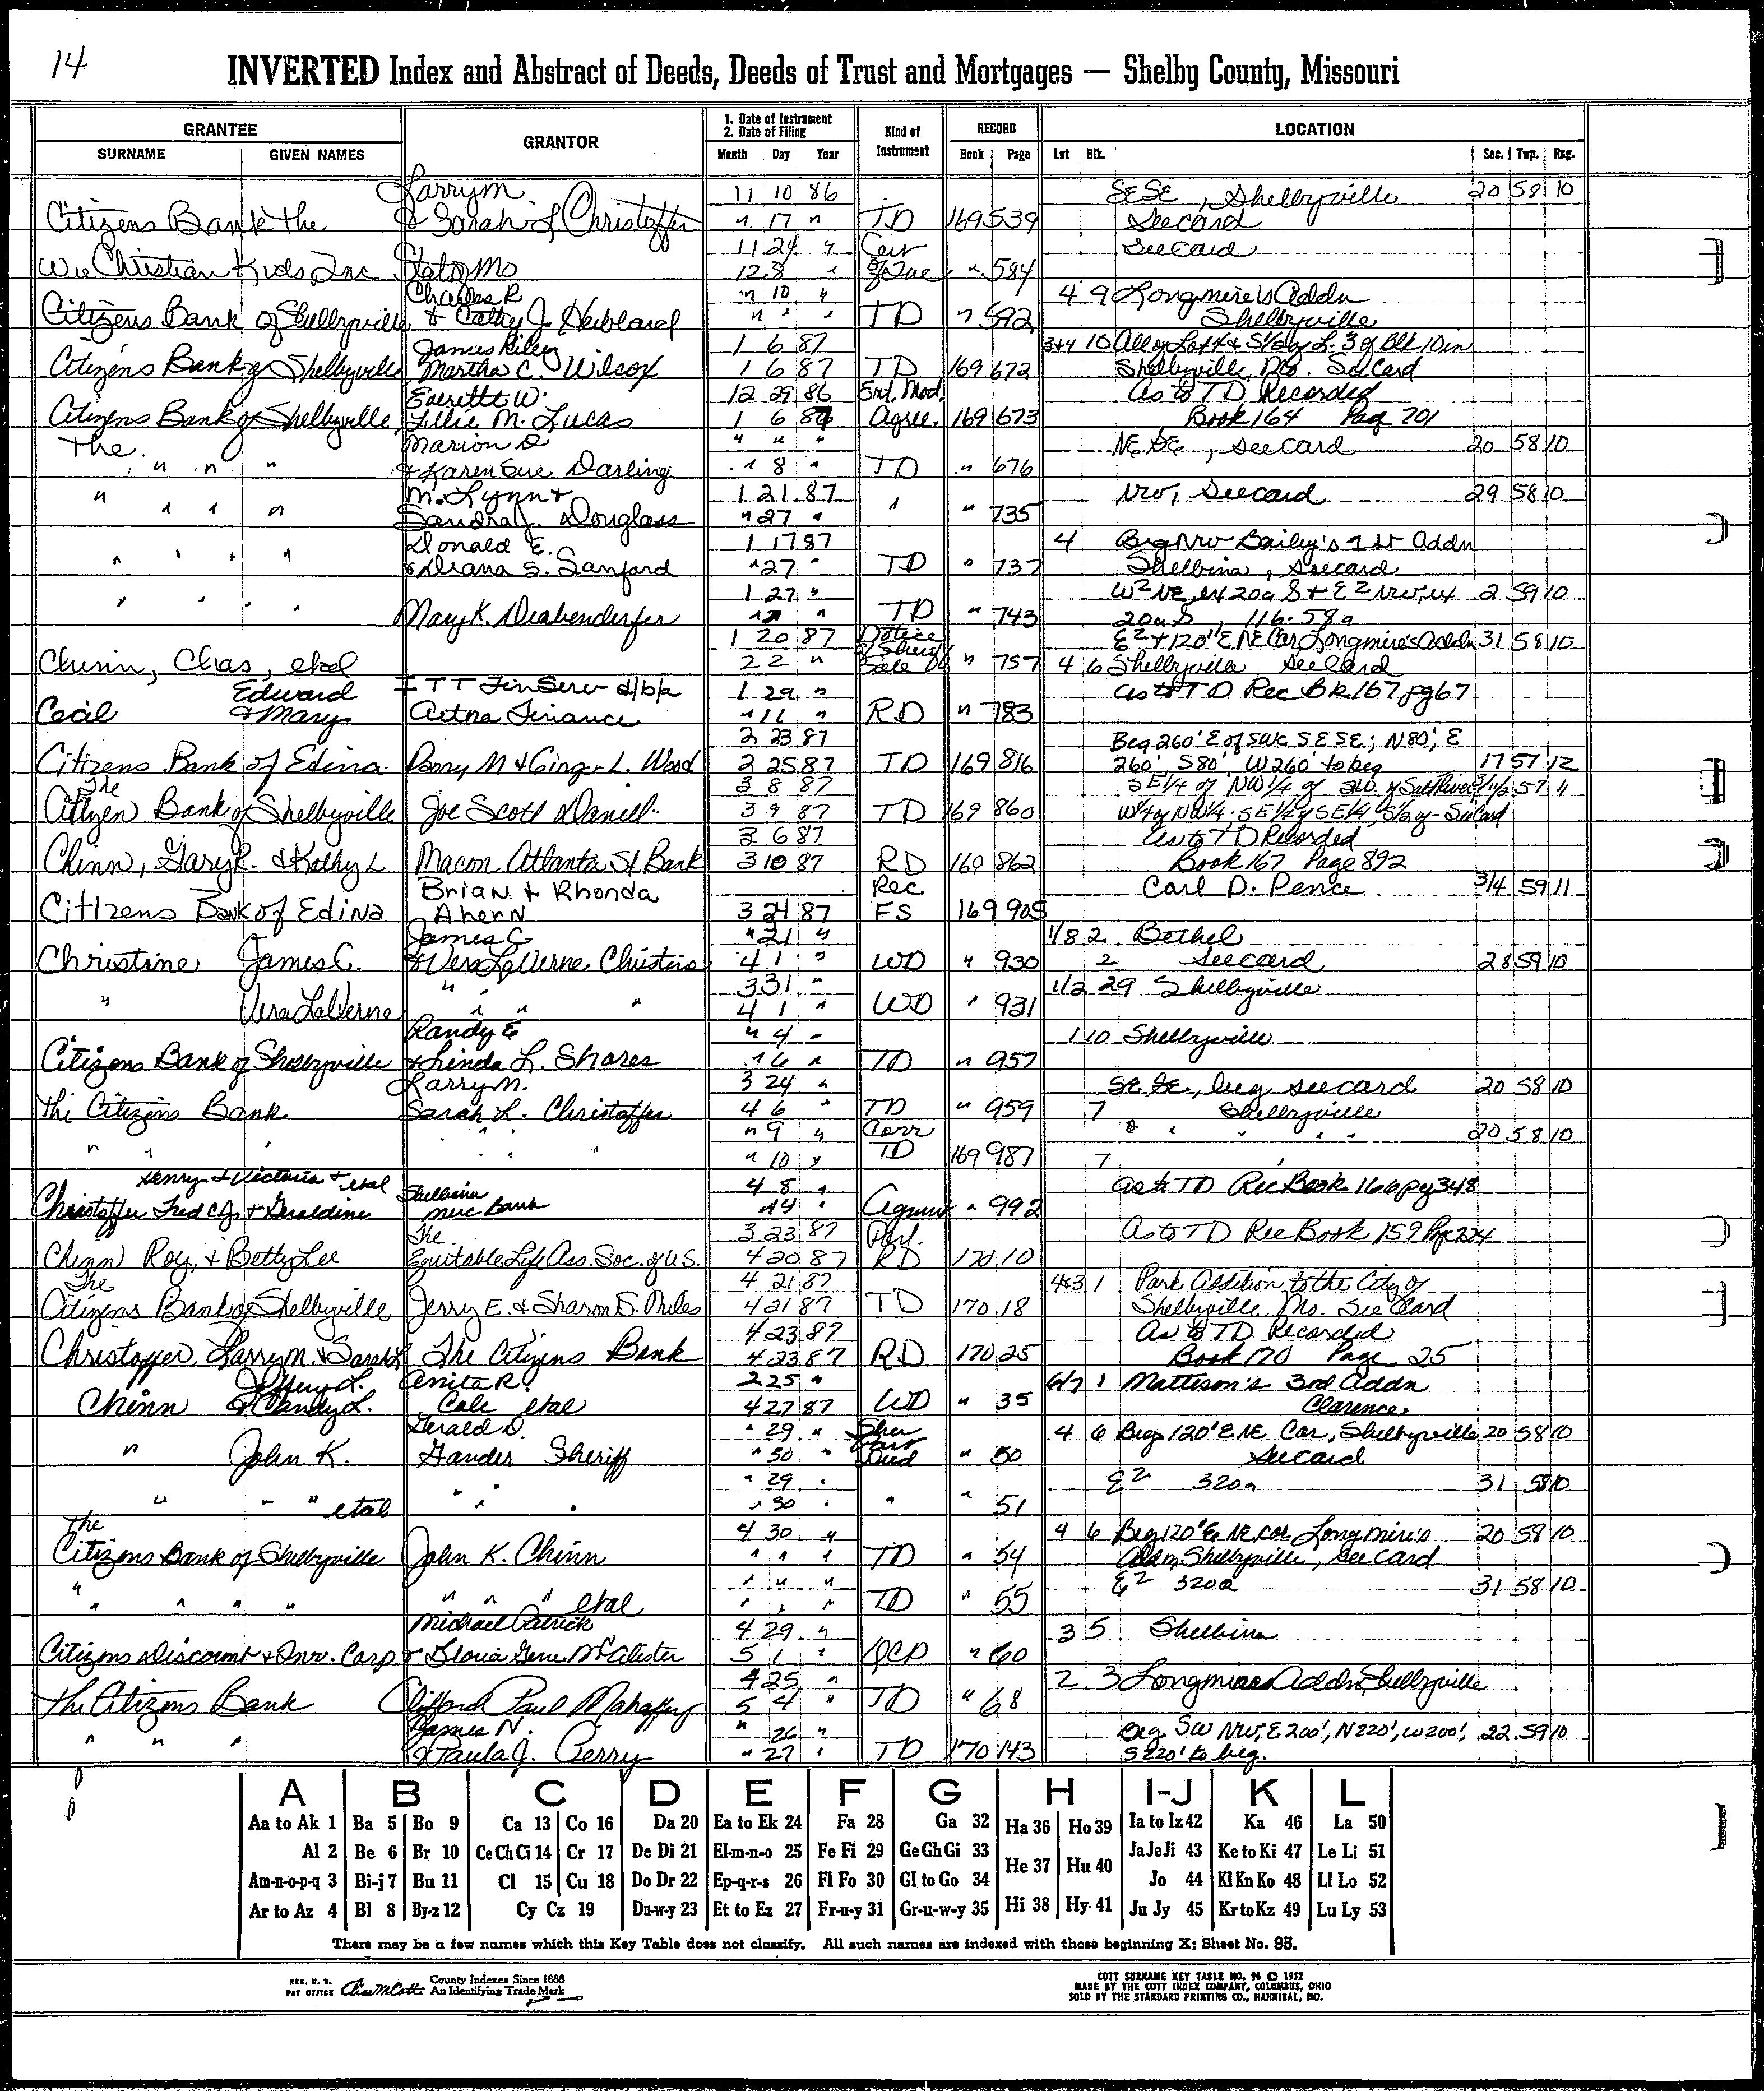 14
INVERTED Index and Abstract of Deeds, Deeds of Trust and Mortgages — Shelby County, Missouri
GRANTEE GRANTOR 1. Date of Instrument 2. Date of Filing Kind of Instrument RECORD LOCATION
SURNAME GIVEN NAMES Month Day Year Book Page Lot Blk. Sec. Twp. Rng.
Larry M 11 10 86 SE SE, Shelbyville 20 58 10
Citizens Bank the & Sarah L Christoffer " 17 " TD 169 539 See card
11 24 " See card
Wee Christian Kids, Inc State Mo 12 8 " of Inc " 584
Charles R " 10 " 4 9 Longmire's Addn
Citizens Bank of Shelbyville & Cathy J. Hubbard " " " TD " 592 Shelbyville
James Riley 1 6 87 3+4 10 All of Lot 4 & S 1/2 of L. 3 of Blk 10 in
Citizens Bank of Shelbyville Martha C. Wilcox 1 6 87 TD 169 672 Shelbyville, Mo. See Card
Everette W. 12 29 86 Ext. Mod. As to TD Recorded
Citizens Bank of Shelbyville, Lillie M. Lucas 1 6 87 Agree. 169 673 Book 164 Page 701
The Marion D " " " NE SE, see card 20 58 10
" " " & Karen Sue Darling " 8 " TD " 676
" M. Lynn & 1 21 87 NW, See card 29 58 10
" " " Sandra J. Douglass " 27 " " " 735
Donald E. 1 17 87 4 Beg NW Bailey's 1st Addn
" " " " & Diana S. Sanford " 27 " TD " 737 Shelbina, see card
1 27 " W2 NE, ex 20a S & E2 NW, ex 2 59 10
" " " " Mary K. Diabenderfer " " " TD " 743 20a S, 116.58a
1 20 87 Notice E2 + 120' E NE Cor Longmire's Addn 31 58 10
Chinn, Chas, etal 22 " Sale " 757 4 6 Shelbyville See Card
Edward ITT Fin Serv d/b/a 1 29 " as to TD Rec Bk 167 pg 67
Cecil & Mary Aetna Finance " 11 " RD " 783
2 23 87 Beg 260' E of SWc SE SE; N80', E
Citizens Bank of Edina Danny M & Ginger L. Wood 2 25 87 TD 169 816 260', S80' W260' to beg 17 57 12
The 3 8 87 SE1/4 of NW1/4 of 57 11
Citizen Bank of Shelbyville Joe Scott Daniel 3 9 87 TD 169 860
3 6 87 As to TD Recorded
Chinn, Gary R. & Kathy L Macon Atlanta St Bank 3 10 87 RD 169 862 Book 167 Page 892
Brian & Rhonda Rec Carl D. Pence 3/4 59 11
Citizens Bank of Edina Ahern 3 24 87 FS 169 905
James C " 21 " 1/8 2 Bethel
Christine James C. & Vera LaVerne Christine 4 1 " WD " 930 2 See card 28 59 10
" " " 3 31 " 1/2 29 Shelbyville
" Vera LaVerne 4 1 " WD " 931
Randy E " 4 " 1 10 Shelbyville
Citizens Bank of Shelbyville & Linda L. Shores " 6 " TD " 957
Larry M. 3 24 " SE SE, beg see card 20 58 10
The Citizens Bank Sarah L. Christoffer 4 6 " TD " 959 7 Shelbyville
" " " " " 9 " Corr " " " " 20 58 10
" 10 " TD 169 987 7 "
Henry & Victoria & etal Shelbina 4 8 " as to TD Rec Book 166 pg 348
Christoffer Fred C Jr. & Geraldine Merc Bank " 14 " Agrmt " 992
The 3 23 87 Part. As to TD Rec Book 159 Page 224
Chinn Roy, & Betty Lee Equitable Life Ass. Soc. of U.S. 4 20 87 RD 170 10
The 4 21 87 4&3 1 Park Addition to the City of
Citizens Bank of Shelbyville Jerry E. & Sharon S. Miles 4 21 87 TD 170 18 Shelbyville, Mo. See Card
4 23 87 As to TD Recorded
Christoffer, Larry M. & Sarah L The Citizens Bank 4 23 87 RD 170 25 Book 170 Page 25
Jeffery L. Anita R. 2 25 " 6/7 1 Mattison's 3rd Addn
Chinn & Candy L. Cole etal 4 27 87 WD " 35 Clarence
Gerald D. " 29 " 4 6 Beg 120' E NE Cor, Shelbyville 20 58 10
" John K. Gander Sheriff " 30 " Deed " 50 See card
" 29 " E2 320a 31 58 10
" " " etal " " " " 30 " " " 51
The 4 30 " 4 6 Beg 120' E NE cor Longmire's 20 58 10
Citizens Bank of Shelbyville John K. Chinn " " " TD " 54 Addn, Shelbyville, see card
" " " " E2 320a 31 58 10
" " " " " " " etal " " " TD " 55
Michael Patrick 4 29 " 3 5 Shelbina
Citizens Discount & Inv. Corp & Gloria Gene McAlister 5 1 " QCD " 60
4 25 " 2 3 Longmires Addn, Shelbyville
The Citizens Bank Clifford Paul Mahaffey 5 4 " TD " 68
James N. " 26 " Beg SW NW, E200', N220', W200', 22 59 10
" " " & Paula J. Perry " 27 " TD 170 143 S220' to beg.
A B C D E F G H I-J K L
Aa to Ak 1 Ba 5 Bo 9 Ca 13 Co 16 Da 20 Ea to Ek 24 Fa 28 Ga 32 Ha 36 Ho 39 Ia to Iz 42 Ka 46 La 50
Al 2 Be 6 Br 10 Ce Ch Ci 14 Cr 17 De Di 21 El-m-n-o 25 Fe Fi 29 Ge Gh Gi 33 He 37 Hu 40 Ja Je Ji 43 Ke to Ki 47 Le Li 51
Am-n-o-p-q 3 Bi-j 7 Bu 11 Cl 15 Cu 18 Do Dr 22 Ep-q-r-s 26 Fl Fo 30 Gl to Go 34 Jo 44 Kl Kn Ko 48 Ll Lo 52
Ar to Az 4 Bl 8 By-z 12 Cy Cz 19 Du-w-y 23 Et to Ez 27 Fr-u-y 31 Gr-u-w-y 35 Hi 38 Hy 41 Ju Jy 45 Kr to Kz 49 Lu Ly 53
There may be a few names which this Key Table does not classify. All such names are indexed with those beginning X; Sheet No. 95.
REG. U. S. PAT OFFICE County Indexes Since 1888 An Identifying Trade Mark
COTT SURNAME KEY TABLE NO. 96 © 1952
MADE BY THE COTT INDEX COMPANY, COLUMBUS, OHIO
SOLD BY THE STANDARD PRINTING CO., HANNIBAL, MO.